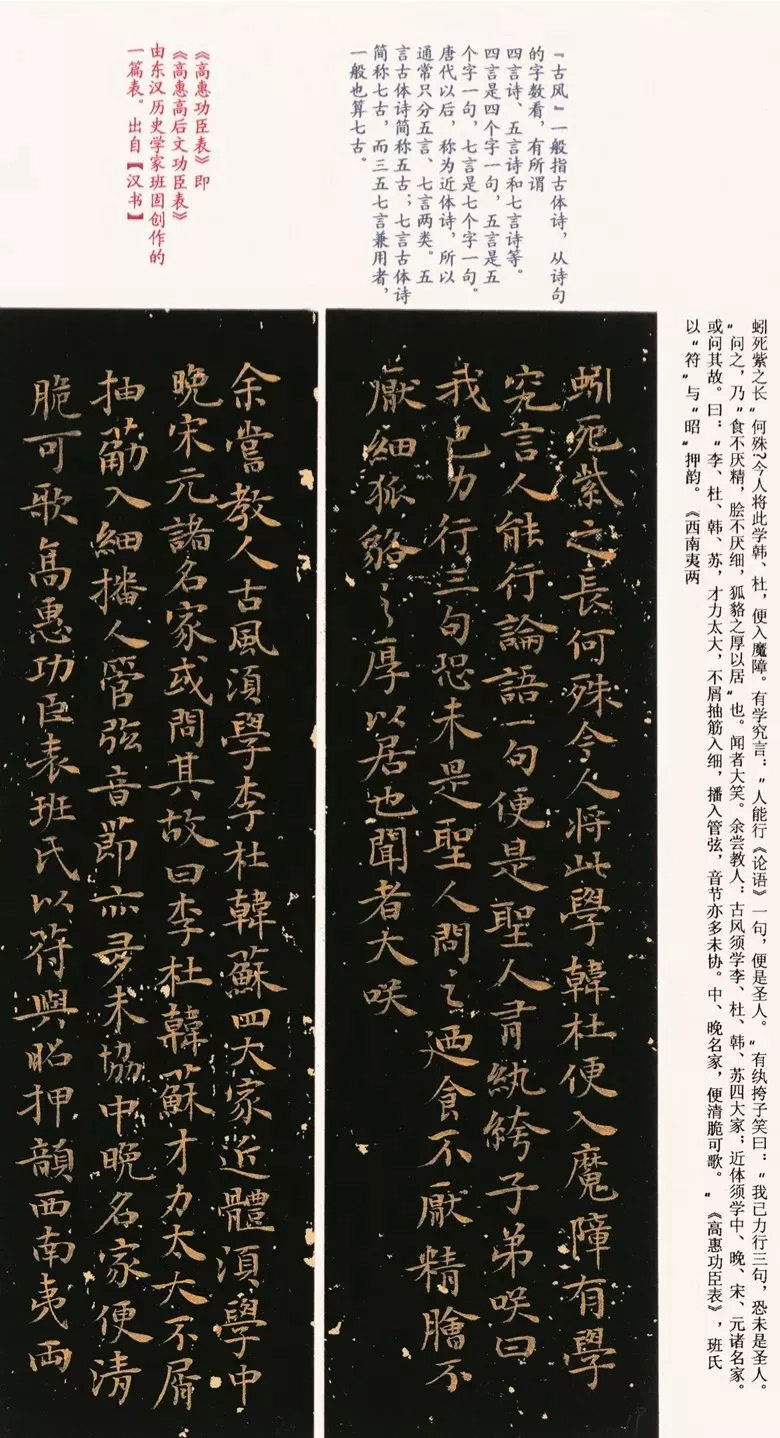 『古风』一般指古体诗，从诗句
的字数看，有所谓
四言诗、五言诗和七言诗等。
四言是四个字一句，五言是五
个字一句，七言是七个字一句。
唐代以后，称为近体诗，所以
通常只分五言、七言两类。五
言古体诗简称五古；七言古体诗
简称七古，而三五七言兼用者，
一般也算七古。
《高惠功臣表》即
《高惠高后文功臣表》
由东汉历史学家班固创作的
一篇表。出自【汉书】
蚓死紫之长“何殊?今人将此学韩、杜，便入魔障。有学究言：“人能行《论语》一句，便是圣人。“有纨挎子笑曰：“我已力行三句，恐未是圣人。
“问之，乃“食不厌精，脍不厌细，狐貉之厚以居“也。闻者大笑。余尝教人：古风须学李、杜、韩、苏四大家；近体须学中、晚、宋、元诸名家。
或问其故。曰：“李、杜、韩、苏，才力太大，不屑抽筋入细，播入管弦，音节亦多未协。中、晚名家，便清脆可歌。“《高惠功臣表》，班氏
以“符“与“昭“押韵。《西南夷两
蚓死紫之長何殊今人将此學韓杜便入魔障有學
究言人能行論語一句便是聖人有紈絝子弟咲曰
我已力行三句恐未是聖人問之迺食不厭精膾不
厭細狐貉之厚以居也聞者大咲
余嘗教人古風須學李杜韓蘇四大家近體須學中
晚宋元諸名家或問其故曰李杜韓蘇才力太大不屑
抽筋入細播入管弦音節亦多未協中晚名家便清
脆可歌高惠功臣表班氏以符與昭押韻西南夷两